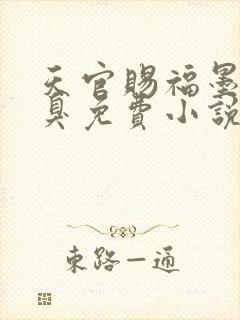 天官賜福墨
臭免費小說
東路一通